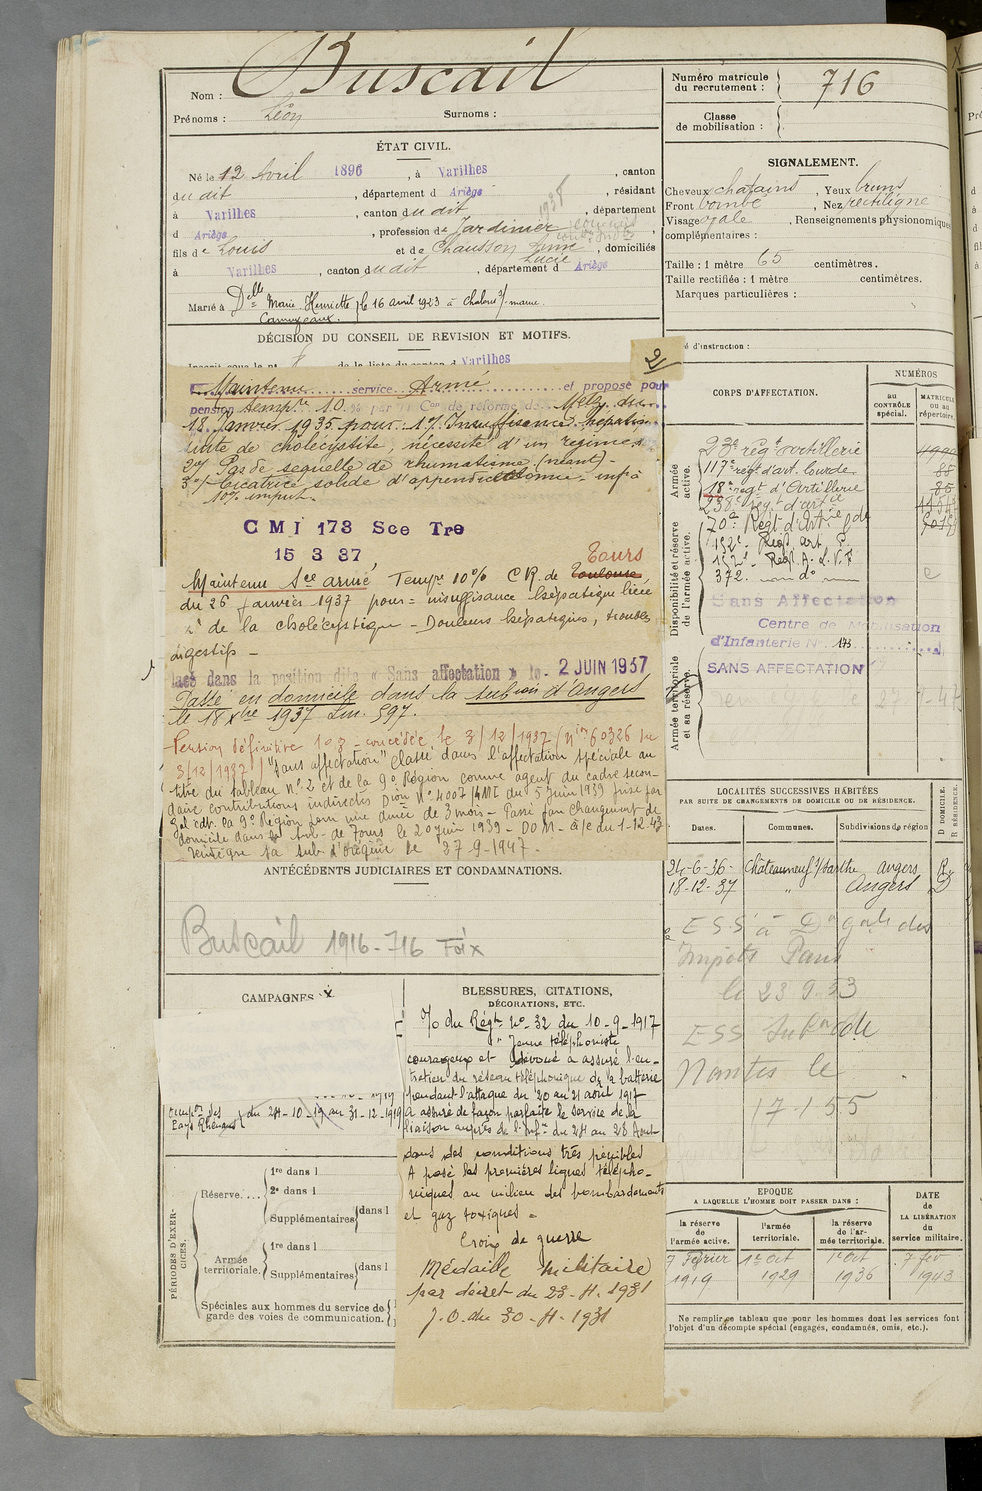 Nom : Buscail
Prénoms : Léon Surnoms :
ÉTAT CIVIL.
Né le 12 Avril 1896, à Varilhes, canton
du dit, département d Ariège, résidant
à Varilhes, canton du dit, département
d Ariège, profession de Jardinier
1938
fils de Louis et de Chausson Anne Lucie, domiciliés
à Varilhes, canton du dit, département d Ariège
Marié à Delle Marie Henriette le 16 avril 1923 à chalons s/ marne.
DÉCISION DU CONSEIL DE REVISION ET MOTIFS.
de la liste du canton d Varilhes
2/
Maintenu service Armé et proposé pour
pension tempre 10 % par Con de réforme de Metz du
18 Janvier 1935 pour : 1°/ Insuffisance hépatique
suite de cholécystite, nécessité d'un régime
2°/ Pas de sequelle de rhumatisme (néant) -
3°/ Cicatrice solide d'appendicectomie - inf. à
10% imput.
C M I 173 Sce Tre
15 3 37
Maintenu Sce armé Tempre 10% C.R. de Toulouse Tours
du 26 janvier 1937 pour = insuffisance hépatique liée
à de la cholécystique - Douleurs hépatiques, troubles
digestifs -
lacé dans la position dite « Sans affectation » le - 2 JUIN 1937
Passé en domicile dans la subon d'Angers
le 18 Xbre 1937 Lm. 597.
Pension définitive 10 % concédée le 3/12/1937 (N° 60326 du
3/12/1937) "Sans affectation" Classé dans l'affectation spéciale au
titre du tableau n° 2 et de la 9e Région comme agent du cadre secon-
daire contributions indirectes Dion N° 4007/1MI du 5 Juin 1939 prise par
Gal cdt la 9e Région pour une durée de 3 mois - Passé par changement de
domicile dans la sub. de Tours le 20 juin 1939 - DOM - à/c du 1-12-43
Réintègre sa sub. d'origine le 27-9-1947 -
ANTÉCÉDENTS JUDICIAIRES ET CONDAMNATIONS.
Buscail 1916 - 716 Foix
CAMPAGNES
Occupon des Pays Rhénans du 24-10-19 au 31-12-1919
BLESSURES, CITATIONS,
DÉCORATIONS, ETC.
%o du Régt N° 32 du 10-9-1917
" Jeune téléphoniste
courageux et dévoué a assuré l'en-
tretien du réseau téléphonique de la batterie
pendant l'attaque du 20 au 21 août 1917
A assuré de façon parfaite le service de la
liaison auprès de l'Infie du 24 au 28 Août
dans des conditions très pénibles
A posé les premières lignes télépho-
niques au milieu des bombardements
et gaz toxiques "
Croix de guerre
Médaille Militaire
par décret du 23-4-1931
J.O. du 30-4-1931
PÉRIODES D'EXERCICES.
Réserve....
1re dans l
2e dans l
Supplémentaires dans l
Armée territoriale.
1re dans l
Supplémentaires dans l
Spéciales aux hommes du service de
garde des voies de communication.
Numéro matricule
du recrutement : 716
Classe
de mobilisation :
SIGNALEMENT.
Cheveux chatains, Yeux bruns
Front bombé, Nez rectiligne
Visage ovale, Renseignements physionomiques
complémentaires :
Taille : 1 mètre 65 centimètres.
Taille rectifiée : 1 mètre centimètres.
Marques particulières :
é d'instruction :
CORPS D'AFFECTATION.
NUMÉROS
AU CONTRÔLE spécial.
MATRICULE ou au répertoire.
Armée active.
23e régt d'artillerie
117e régt d'art. lourde 85
18e régt d'Artillerie 85
Disponibilité et réserve de l'armée active.
238e régt d'artie
70e Régt d'Artie
152e Régt art. P.
152e Régt A. L. V. F
372. — d° —
Sans Affectation
Centre de Mobilisation
d'Infanterie N° 173
Armée territoriale et sa réserve.
SANS AFFECTATION
LOCALITÉS SUCCESSIVES HABITÉES
PAR SUITE DE CHANGEMENTS DE DOMICILE OU DE RÉSIDENCE.
D DOMICILE.
R RÉSIDENCE.
Dates. Communes. Subdivisions de région
24-6-36- Châteauneuf s/ Sarthe Angers R
18-12-37 " Angers D
ESS à Don Gale des
Impôts Paris
le 23 9.53
ESS Subon de
Nantes le
17-1-55
EPOQUE
A LAQUELLE L'HOMME DOIT PASSER DANS :
DATE
de
LA LIBÉRATION
du
service militaire.
la réserve
de
l'armée active.
l'armée
territoriale.
la réserve
de l'ar-
mée territoriale.
7 Février 1919
1er Oct 1929
1er Oct 1936
7 fév 1943
Ne remplir ce tableau que pour les hommes dont les services font
l'objet d'un décompte spécial (engagés, condamnés, omis, etc.).